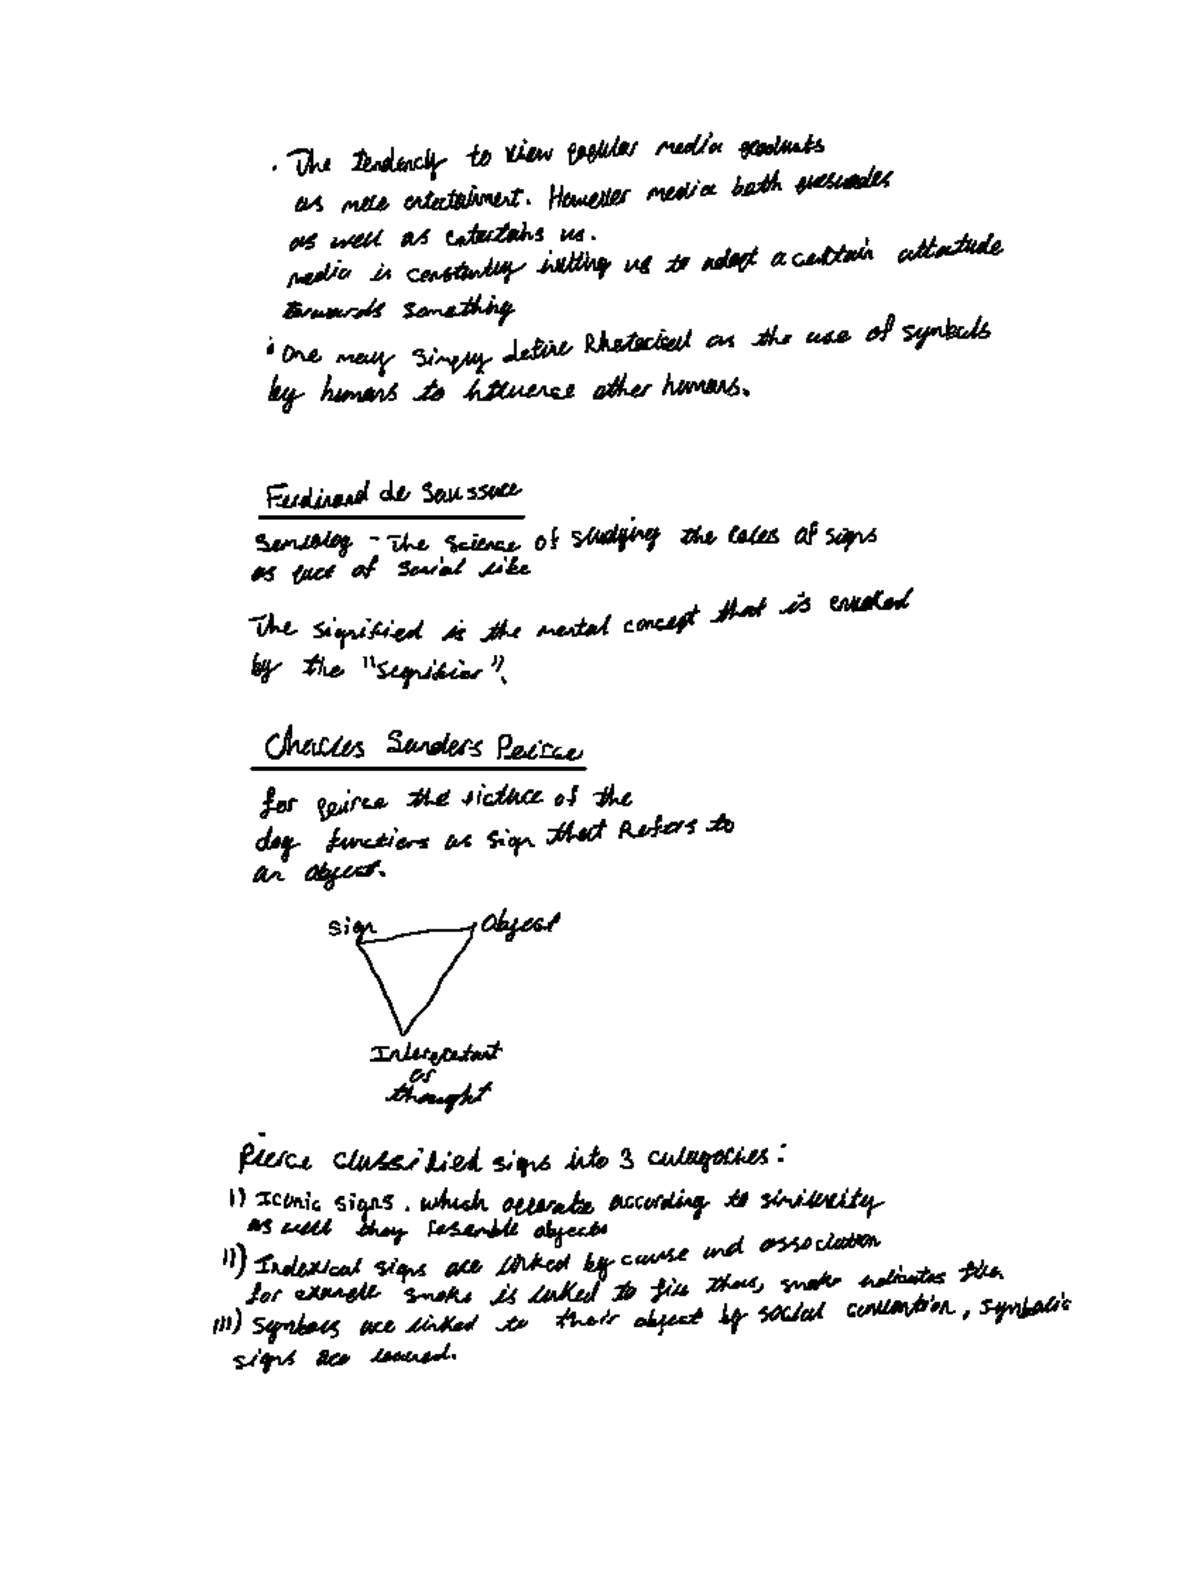 • The tendency to view popular media products
as mere entertainment. However media both persuades
as well as entertains us.
media is constantly inviting us to adopt a certain attitude
towards something
• One may simply define Rhetorical as the use of symbols
by humans to influence other humans.
Ferdinand de Saussure
Semiology - The science of studying the roles of signs
as part of social life
The signified is the mental concept that is created
by the "Signifier".
Charles Sanders Peirce
for peirce the picture of the
dog functions as sign that Refers to
an object.
Sign Object
Interpretant
or
thought
Pierce classified signs into 3 categories:
i) Iconic signs. which operate according to similarity
as well they resemble objects
ii) Indexical signs are linked by cause and association
for example smoke is linked to fire thus, smoke indicates fire
iii) Symbols are linked to their object by social convention, symbolic
signs are learned.